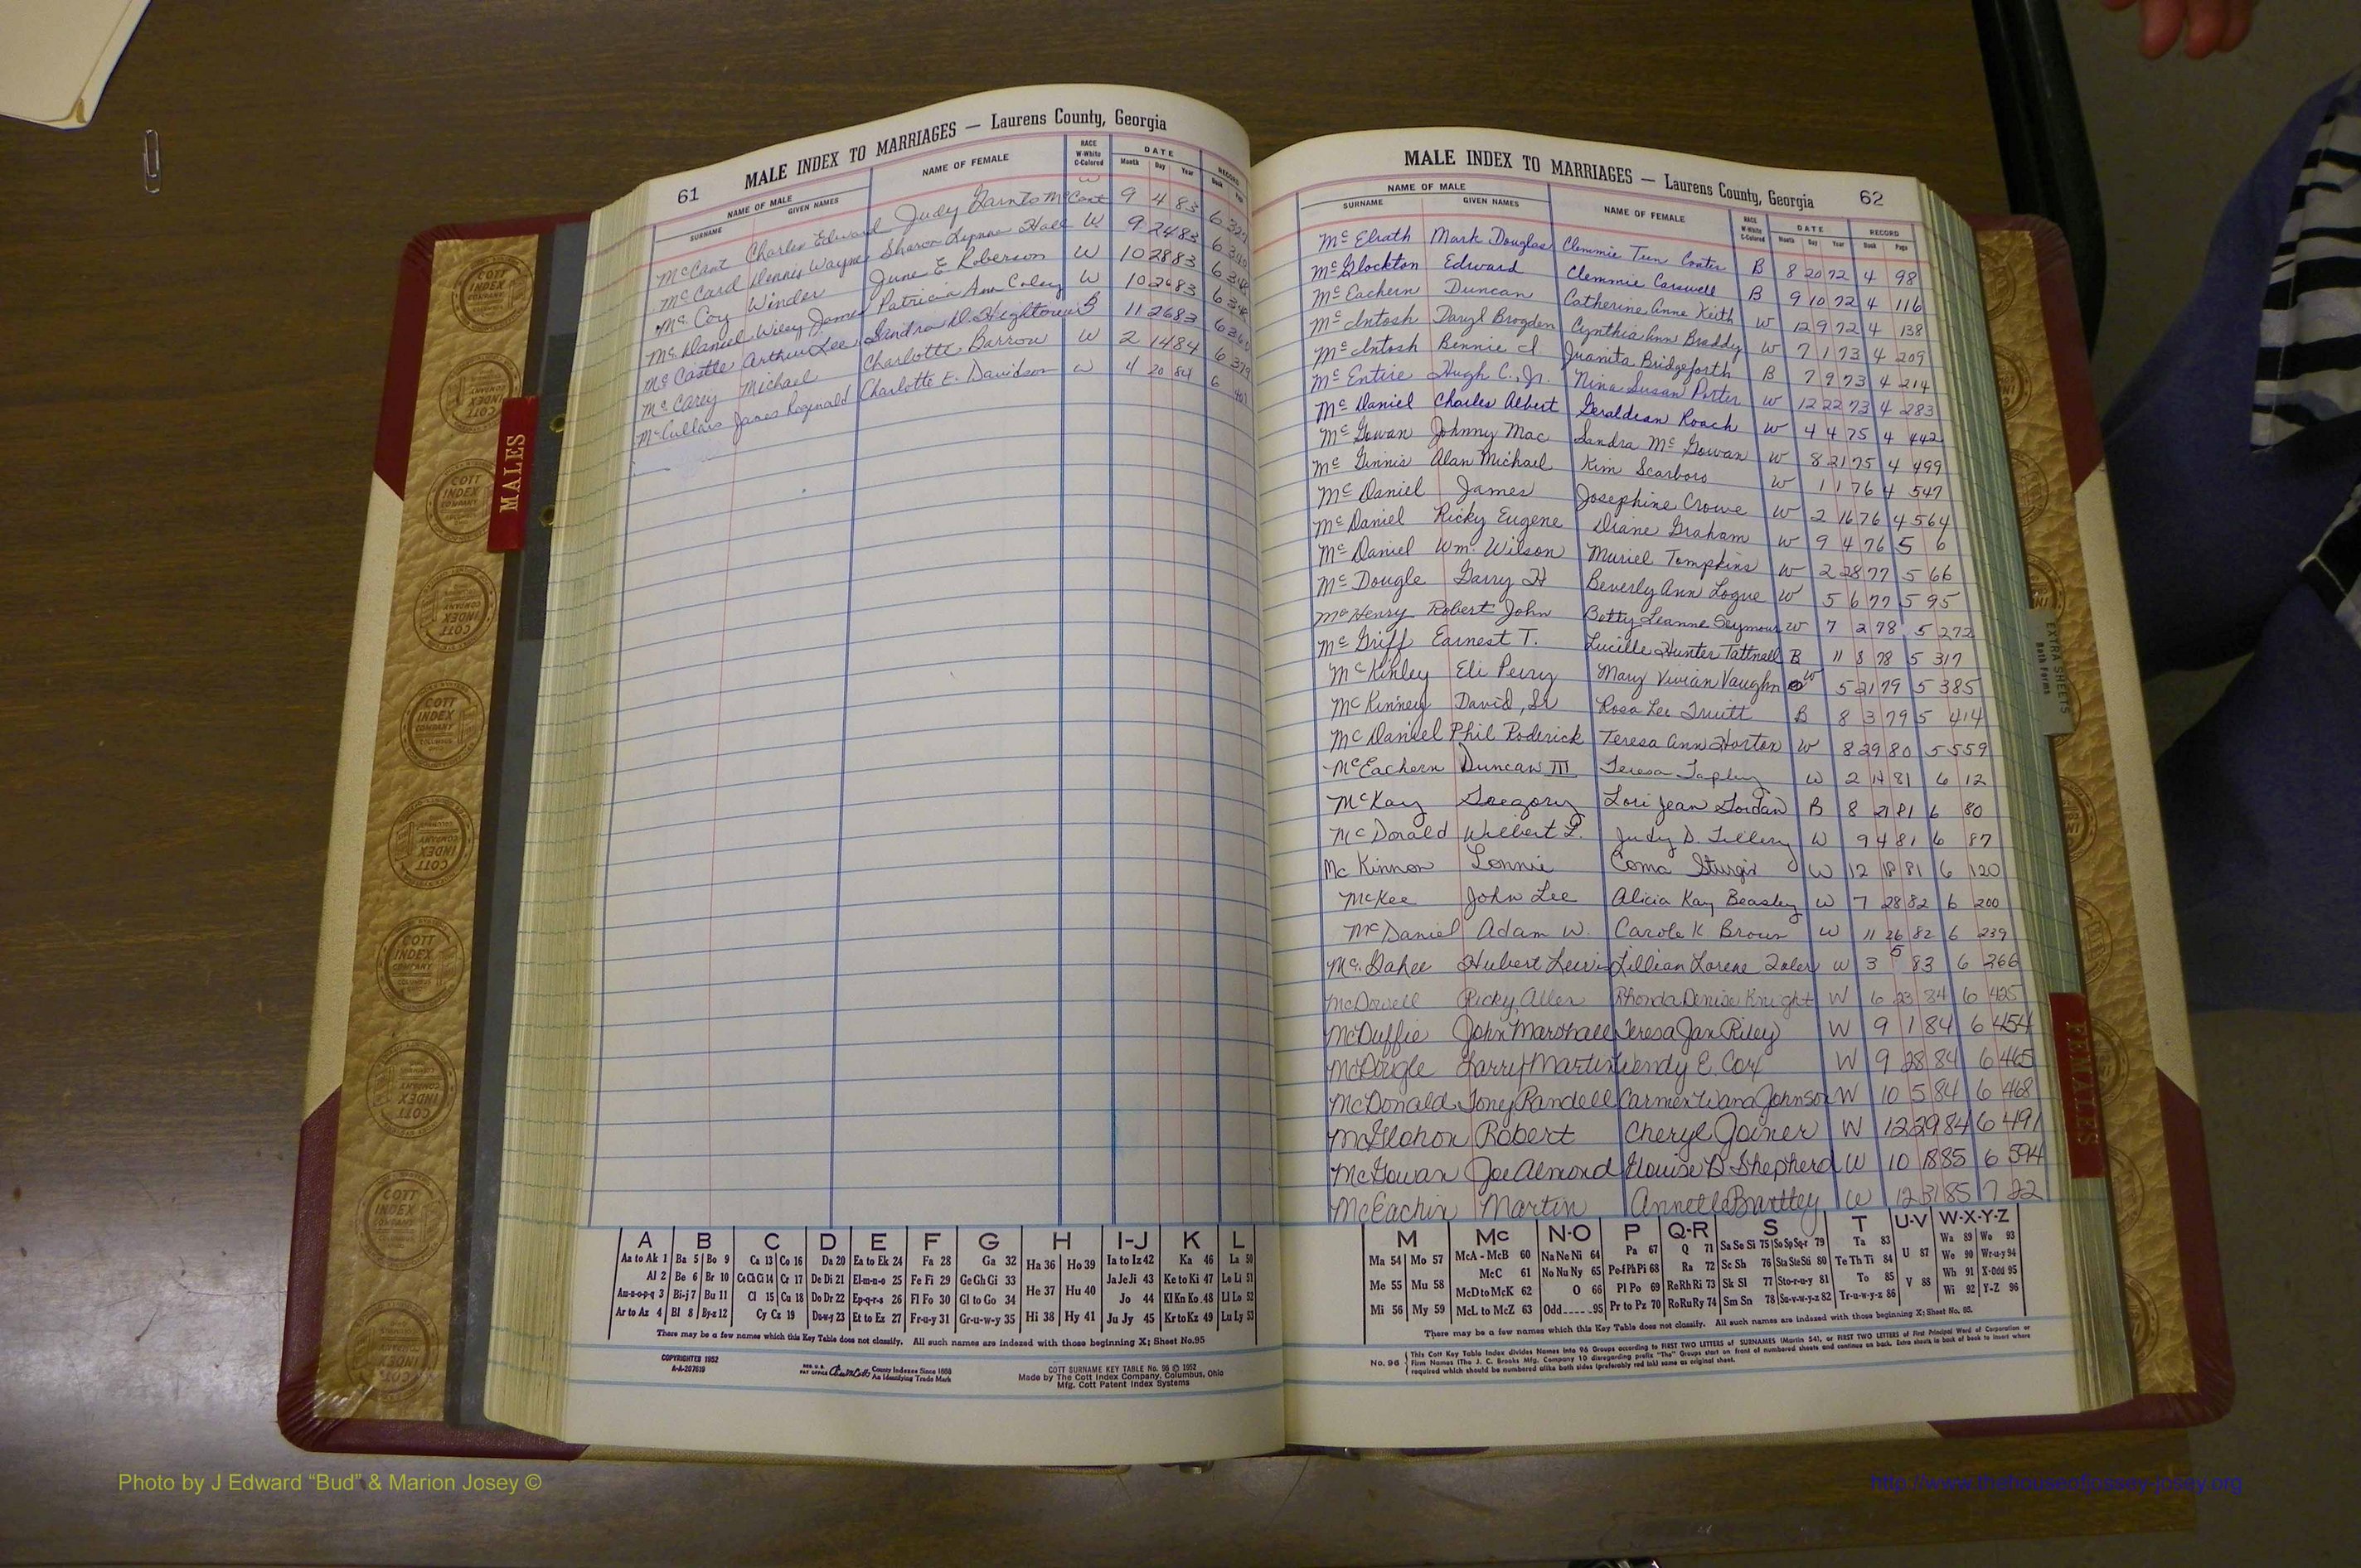 61 MALE INDEX TO MARRIAGES — Laurens County, Georgia
NAME OF MALE NAME OF FEMALE RACE W-White C-Colored DATE RECORD
SURNAME GIVEN NAMES Month Day Year Book Page
McCant Charles Edward Judy McCant W 9 4 83 6
McCard Dennis Wayne Sharon Lynne Hall W 9 24 83 6
McCoy Winder June E Roberson W 10 28 83 6
McDaniel Wiley James Patricia Ann Coley W 10 26 83 6
McCastle Arthur Lee Sandra D. Hightower B 11 26 83 6
McCarey Michael Charlotte Barrow W 2 14 84 6 379
McCullars James Reginald Charlotte E. Davidson W 4 20 84 6
MALES
MALE INDEX TO MARRIAGES — Laurens County, Georgia 62
NAME OF MALE NAME OF FEMALE RACE W-White C-Colored DATE RECORD
SURNAME GIVEN NAMES Month Day Year Book Page
McElrath Mark Douglas Clemmie Coater B 8 20 72 4 98
McGlockton Edward Clemmie Carswell B 9 10 72 4 116
McEachern Duncan Catherine Anne Keith W 12 9 72 4 138
McIntosh Daryl Brogden Cynthia Ann Braddy W 7 1 73 4 209
McIntosh Bennie J. Juanita Bridgeforth B 7 9 73 4 214
McEntire Hugh C., Jr. Nina Susan Porter W 12 22 73 4 283
McDaniel Charles Albert Geraldean Roach W 4 4 75 4 442
McGowan Johnny Mac Sandra McGowan W 8 21 75 4 499
McGinnis Alan Michael Kim Scarboro W 1 1 76 4 547
McDaniel James Josephine Crowe W 2 16 76 4 564
McDaniel Ricky Eugene Diane Graham W 9 4 76 5 6
McDaniel Wm. Wilson Muriel Tompkins W 2 28 77 5 66
McDougle Garry H Beverly Ann Logue W 5 6 77 5 95
McHenry Robert John Betty Leanne Seymour W 7 2 78 5 272
McGriff Earnest T. Lucille Hunter Tattnall B 11 8 78 5 317
McKinley Eli Perry Mary Vivian Vaughn W 5 21 79 5 385
McKinney David, Sr Rosa Lee Truitt B 8 3 79 5 414
McDaniel Phil Roderick Teresa Ann Horton W 8 29 80 5 559
McEachern Duncan III Teresa Tapley W 2 14 81 6 12
McKay Gregory Lori Jean Jordan B 8 21 81 6 80
McDonald Wilbert L. Judy D. Tillery W 9 4 81 6 87
McKinnon Lonnie Coma Sturgis W 12 18 81 6 120
McKee John Lee Alicia Kay Beasley W 7 28 82 6 200
McDaniel Adam W. Carole K Brown W 11 26 82 6 239
McGahee Hubert Lewis Lillian Lorene Toler W 3 5 83 6 266
McDowell Ricky Allen Rhonda Denise Knight W 6 23 84 6 425
McDuffie John Marshall Teresa Jan Riley W 9 1 84 6 454
McDougle Larry Martin Wendy E. Cox W 9 28 84 6 465
McDonald Tony Randell Carmen Wana Johnson W 10 5 84 6 468
McGlohon Robert Cheryl Joiner W 12 29 84 6 491
McGowan Joe Almond Elouise B Shepherd W 10 18 85 6 594
McEachin Martin Annette Brantley W 12 31 85 7 22
EXTRA SHEETS
Both Forms
FEMALES
A B C D E F G H I-J K L
Aa to Ak 1 Ba 5 Bo 9 Ca 13 Co 16 Da 20 Ea to Ek 24 Fa 28 Ga 32 Ha 36 Ho 39 Ia to Iz 42 Ka 46 La 50
Al 2 Be 6 Br 10 Ce Ch Ci 14 Cr 17 De Di 21 El-m-n-o 25 Fe Fi 29 Ge Gh Gi 33 He 37 Hu 40 Ja Je Ji 43 Ke to Ki 47 Le Li 51
Am-n-o-p-q 3 Bi-j 7 Bu 11 Cl 15 Cu 18 Do Dr 22 Ep-q-r-s 26 Fl Fo 30 Gl to Go 34 Jo 44 Kl Kn Ko 48 Ll Lo 52
Ar to Az 4 Bl 8 By-z 12 Cy Cz 19 Du-w-y 23 Et to Ez 27 Fr-u-y 31 Gr-u-w-y 35 Hi 38 Hy 41 Ju Jy 45 Kr to Kz 49 Lu Ly 53
There may be a few names which this Key Table does not classify. All such names are indexed with those beginning X; Sheet No.95
COPYRIGHTED 1952
A-A-297619
County Indexes Since 1888
An Identifying Trade Mark
COTT SURNAME KEY TABLE No. 96 © 1952
Made by The Cott Index Company, Columbus, Ohio
Mfg. Cott Patent Index Systems
M Mc N-O P Q-R S T U-V W-X-Y-Z
Ma 54 Mo 57 McA - McB 60 Na Ne Ni 64 Pa 67 Q 71 Sa Se Si 75 So Sp Sq-r 79 Ta 83 U 87 Wa 89 Wo 93
Me 55 Mu 58 McC 61 No Nu Ny 65 Pe-f Ph Pi 68 Ra 72 Sc Sh 76 Sta Ste Sti 80 Te Th Ti 84 We 90 Wr-u-y 94
McD to McK 62 O 66 Pl Po 69 Re Rh Ri 73 Sk Sl 77 Sto-r-u-y 81 To 85 V 88 Wh 91 X-Odd 95
Mi 56 My 59 McL to McZ 63 Odd 95 Pr to Pz 70 Ro Ru Ry 74 Sm Sn 78 Su-v-w-y-z 82 Tr-u-w-y-z 86 Wi 92 Y-Z 96
There may be a few names which this Key Table does not classify. All such names are indexed with those beginning X; Sheet No. 95.
No. 96 This Cott Key Table Index divides Names into 96 Groups according to FIRST TWO LETTERS of SURNAMES (Martin 54), or FIRST TWO LETTERS of First Principal Word of Corporation or
Firm Names (The J. C. Brooks Mfg. Company 10 disregarding prefix "The" Groups start on front of numbered sheets and continue on back. Extra sheets in back of book to insert where
required which should be numbered alike both sides (preferably red ink) same as original sheet.
COTT INDEX COMPANY
Photo by J Edward “Bud” & Marion Josey ©
http://www.thehouseofjossey-josey.org